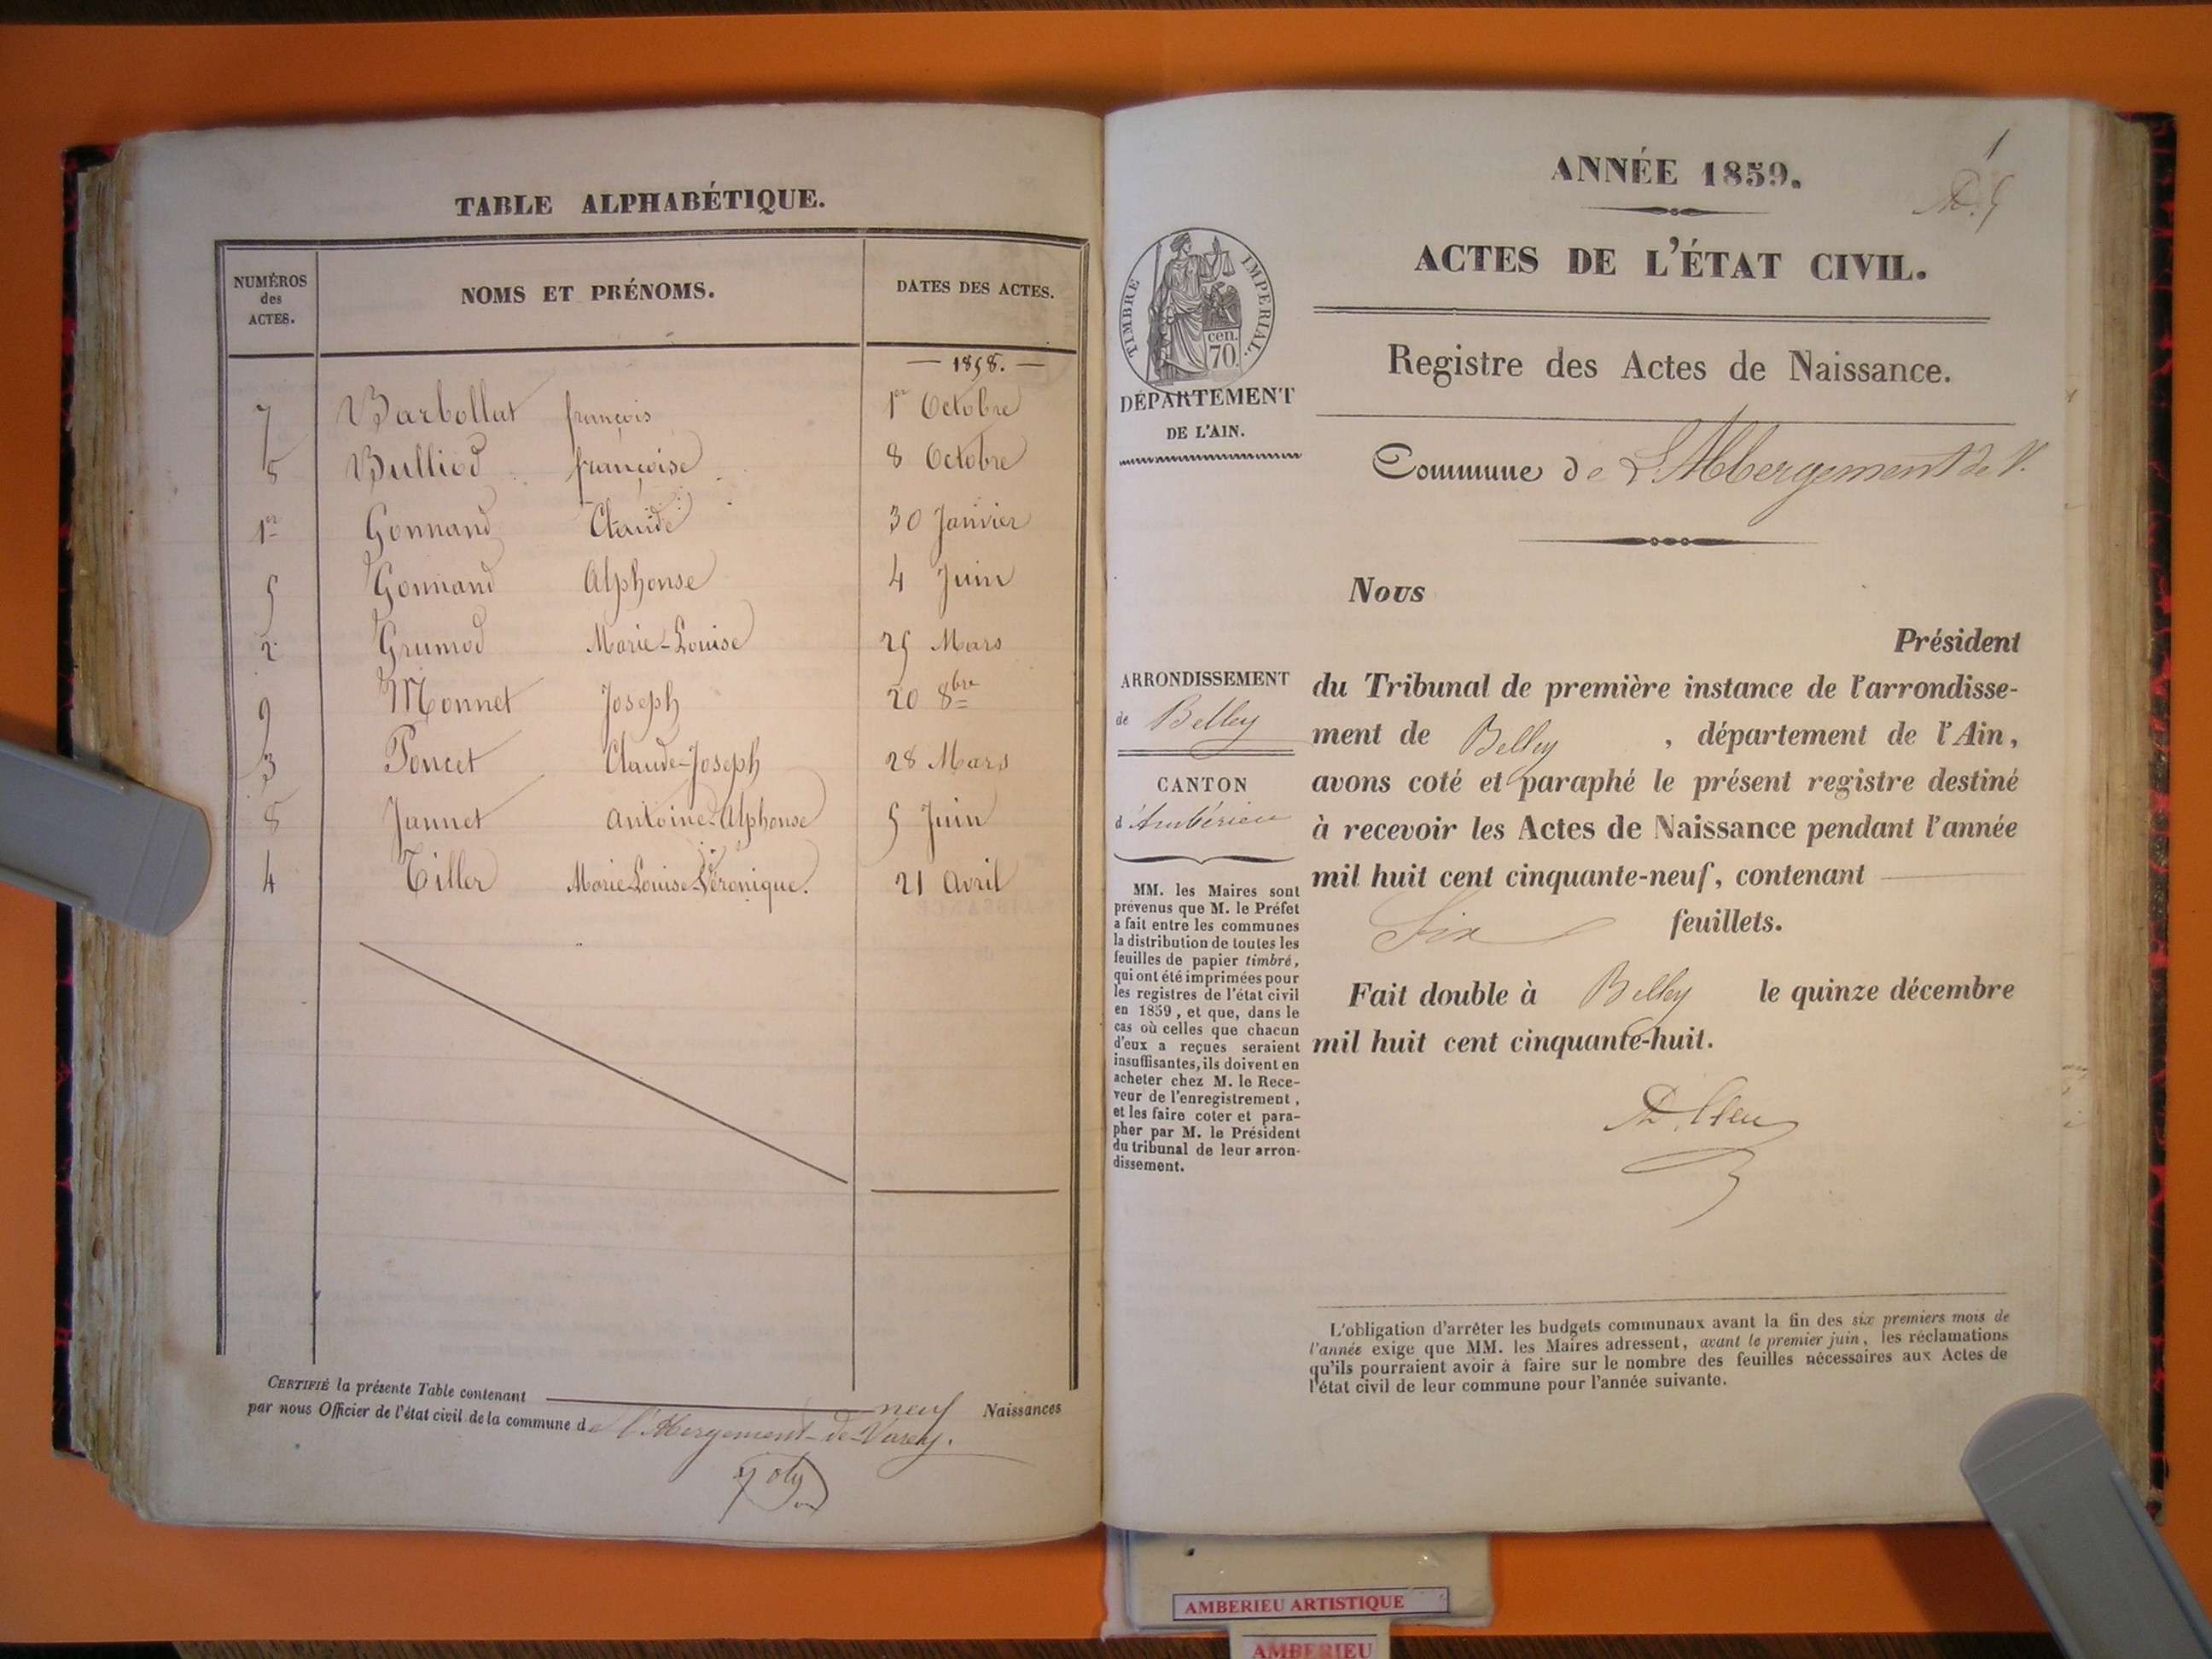 TABLE ALPHABÉTIQUE.
NUMÉROS des ACTES.
NOMS ET PRÉNOMS.
DATES DES ACTES.
— 1858. —
7 Barbollat françois 1er Octobre
8 Bulliod françoise 8 Octobre
1er Gonnand Claude 30 Janvier
5 Gonnand Alphonse 4 Juin
2 Grumod Marie-Louise 25 Mars
9 Monnet Joseph 20 8bre
3 Poncet Claude-Joseph 28 Mars
8 Jannet Antoine-Alphonse 5 Juin
4 Tiller Marie Louise Véronique. 21 Avril
CERTIFIÉ la présente Table contenant neuf Naissances
par nous Officier de l'état civil de la commune de l'Abergement-de-Varey.
1
ANNÉE 1859.
ACTES DE L'ÉTAT CIVIL.
TIMBRE IMPERIAL.
cen.
70.
DÉPARTEMENT
DE L'AIN.
Registre des Actes de Naissance.
Commune de L'Abbergement de V.
Nous
Président
ARRONDISSEMENT
de Belley
CANTON
d'Ambérieu
MM. les Maires sont
prévenus que M. le Préfet
a fait entre les communes
la distribution de toutes les
feuilles de papier timbré,
qui ont été imprimées pour
les registres de l'état civil
en 1859, et que, dans le
cas où celles que chacun
d'eux a reçues seraient
insuffisantes, ils doivent en
acheter chez M. le Rece-
veur de l'enregistrement,
et les faire coter et para-
pher par M. le Président
du tribunal de leur arron-
dissement.
du Tribunal de première instance de l'arrondisse-
ment de Belley , département de l'Ain,
avons coté et paraphé le présent registre destiné
à recevoir les Actes de Naissance pendant l'année
mil huit cent cinquante-neuf, contenant
Six feuillets.
Fait double à Belley le quinze décembre
mil huit cent cinquante-huit.
L'obligation d'arrêter les budgets communaux avant la fin des six premiers mois de
l'année exige que MM. les Maires adressent, avant le premier juin, les réclamations
qu'ils pourraient avoir à faire sur le nombre des feuilles nécessaires aux Actes de
l'état civil de leur commune pour l'année suivante.
AMBERIEU ARTISTIQUE
AMBERIEU